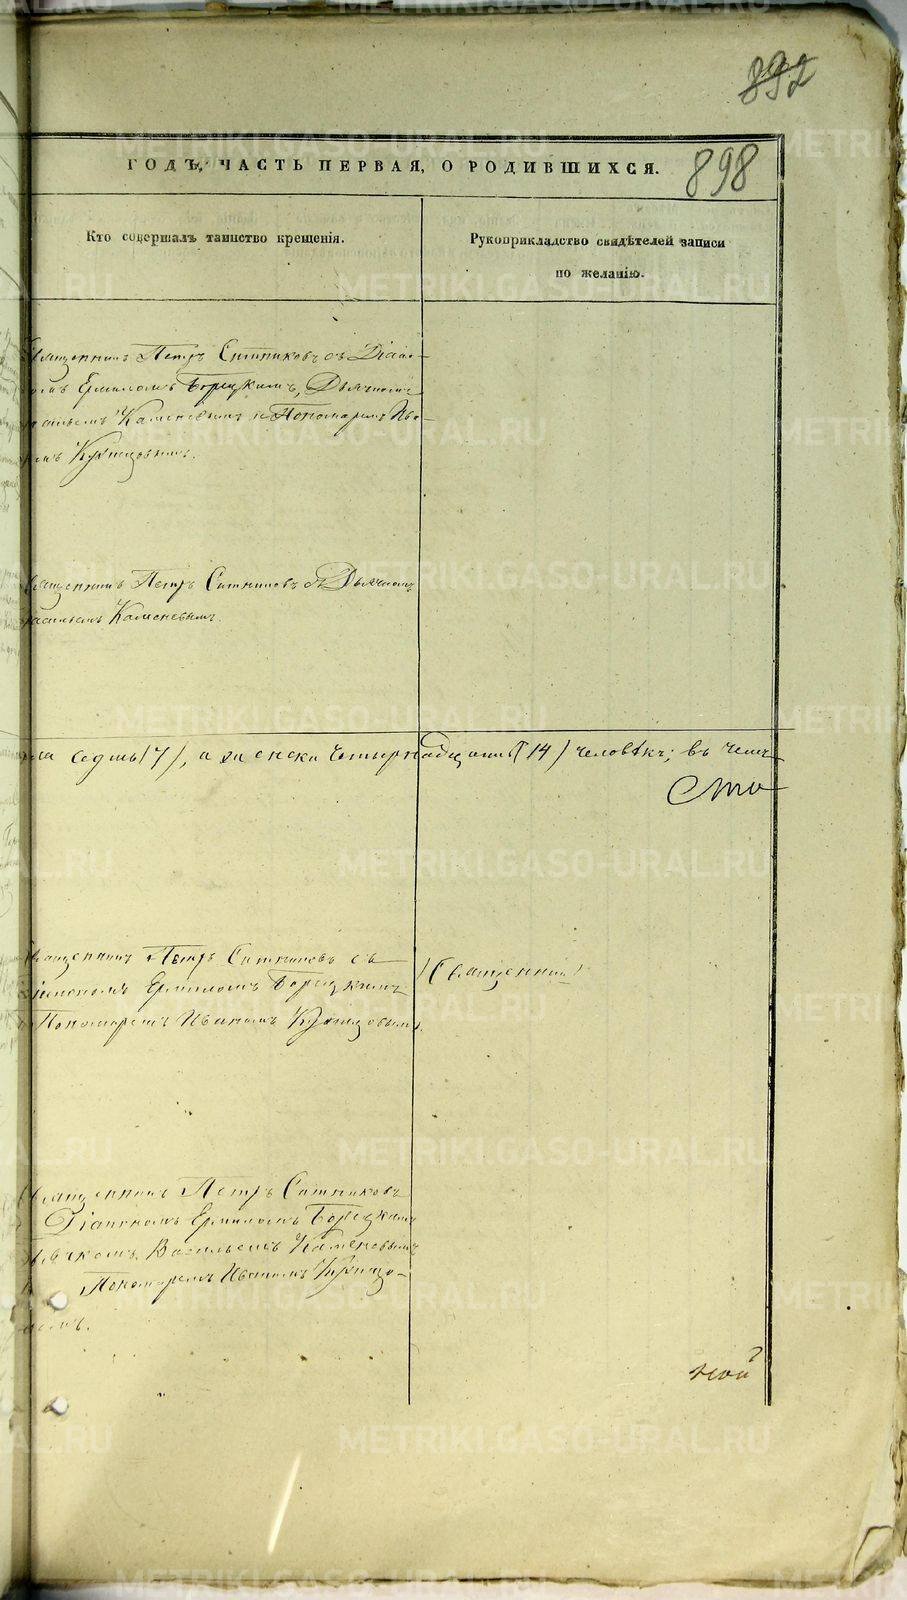 892
898
ГОДЪ, ЧАСТЬ ПЕРВАЯ, О РОДИВШИХСЯ.
Кто совершалъ таинство крещенія.
Рукоприкладство свидѣтелей записи
по желанію.
Священникъ Петръ Ситниковъ съ Діако-
номъ Ермиломъ Борецкимъ, Дьячкомъ
Васильемъ Каменевымъ и Пономаремъ Ива-
номъ Кунцовымъ.
Священникъ Петръ Ситниковъ съ Дьячкомъ
Васильемъ Каменевымъ.
седмь (7), а женска четырнадцать (14) человѣкъ; въ чемъ
Священникъ Петръ Ситниковъ съ
Діакономъ Ермиломъ Борецкимъ
Пономаремъ Иваномъ
Священник
Священникъ Петръ Ситниковъ
Діакономъ Ермиломъ Борецкимъ
Дьячкомъ Васильемъ Каменевымъ
Пономаремъ Иваномъ
ной
METRIKI.GASO-URAL.RU